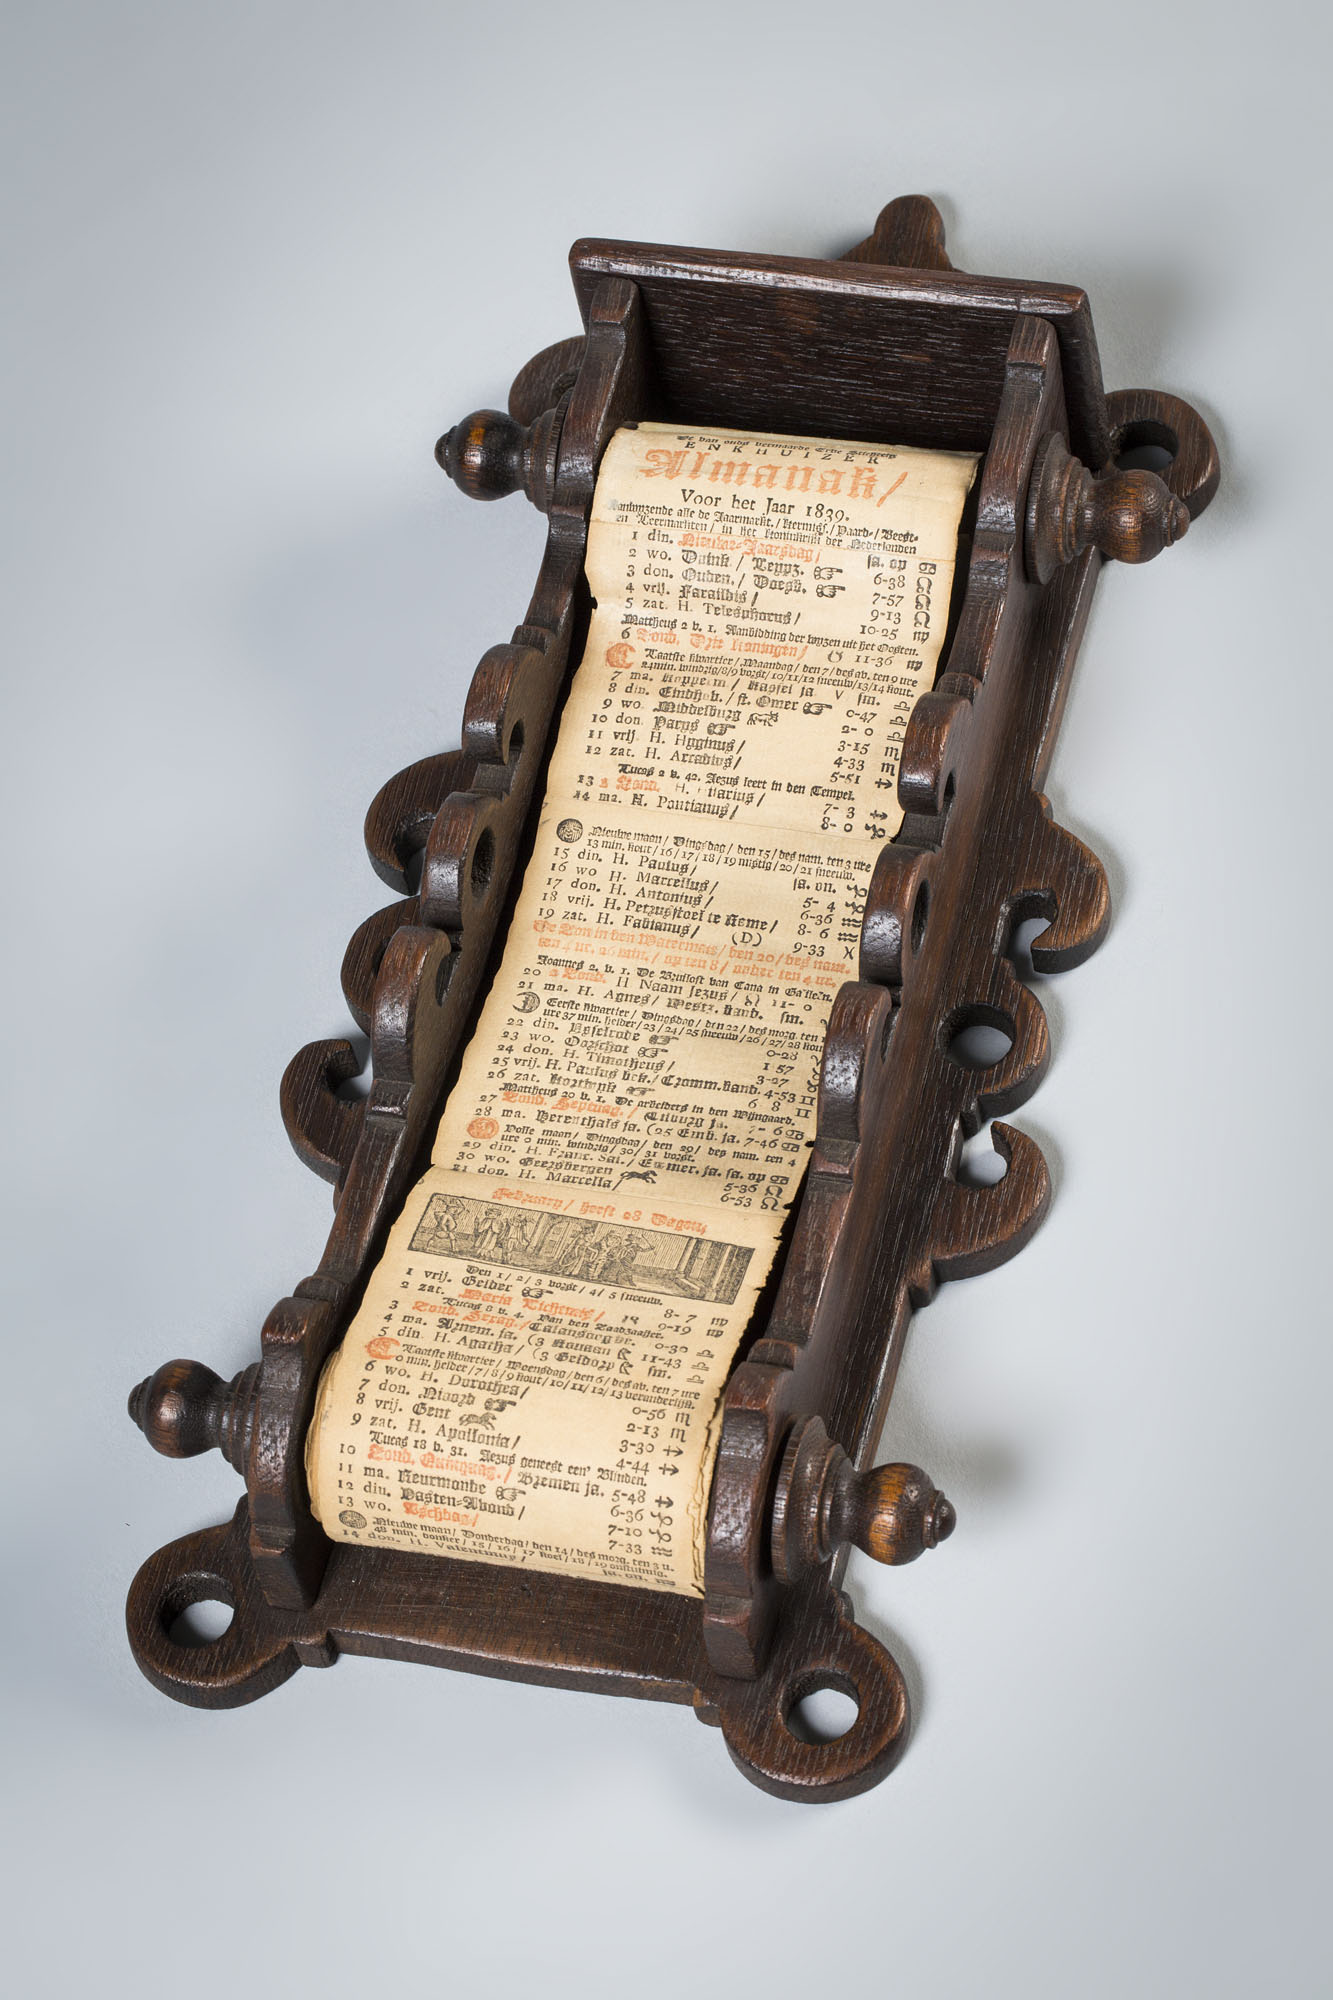 De van ouds vermaarde Erve Stichters
ENKHUIZER
Almanak/
Voor het Jaar 1839.
Aanwyzende alle de Jaarmarkt./kermiss./Paard-/Beest-
en Leermarkten/in het koninkrijk der Nederlanden
1 din. Nieuwe-Jaarsdag/ sa. op
2 wo. Duink/Leypz. 6-38
3 don. Ouden./Doesb. 7-57
4 vrij. Faraildis/ 9-13
5 zat. H. Telesphorus/ 10-25
Mattheus 2 v. 1. Aanbidding der wyzen uit het Oosten.
6 Zond. Drie koningen/ 11-36
Laatste kwartier/Maandag/den 7/des av. ten 9 ure
24 min. windrig/8/9 vorst/10/11/12 sneeuw/13/14 kout.
7 ma. sm.
8 din. Eindhov./st. Omer 0-47
9 wo Middelburg 2- 0
10 don Parys 3-15
11 vrij. H. Hyginus/ 4-33
12 zat. H. Arcadius/ 5-51
Lucas 2 v. 42. Jezus leert in den Tempel.
13 Zond. H. Hilarius/ 7- 3
14 ma. H. Pontianus/ 8- 0
Nieuwe maan/Dingsdag/den 15/des nam. ten 3 ure
13 min. kout/16/17/18/19 mistig/20/21 sneeuw.
15 din. H. Paulus/ sa. on.
16 wo H. Marcellus/ 5- 4
17 don. H. Antonius/ 6-36
18 vrij. H. Petrus stoel te Rome/ 8- 6
19 zat. H. Fabianus/ (D) 9-33
De Zon in den Waterman/den 20/des nam.
ten 4 ur. 26 min./op ten 8/onder ten 4 ur.
Joannes 2. v. 1. De Bruiloft van Cana in Galileën.
20 2 Zond. H Naam Jezus/ 11- 0
21 ma. H. Agnes/Westz. hand. sm.
Eerste kwartier/Dingsdag/den 22/des morg. ten
ure 37 min. helder/23/24/25 sneeuw/26/27/28 kout
22 din. Ysselrode 0-28
23 wo. Oorschot 1 57
24 don. H. Timotheus/ 3-27
25 vrij. H. Paulus bek./Cromm. hand. 4-53
26 zat. Kortwyk 6 8
Mattheus 20 v. 1. De arbeiders in den Wijngaard.
27 Zond. Septuag./Tilburg ja. 7- 6
28 ma. Herenthals ja. (25 Einh. ja. 7-46
Volle maan/Dingsdag/den 29/des nam. ten 4
ure 0 min. windrig/30/31 vorst.
29 din. H. Franc. Sal./Emmer. ja. sa. op
30 wo. Geersbergen 5-36
31 don. H. Marcella/ 6-53
February/heeft 28 Dagen/
Den 1/2/3 vorst/4/5 sneeuw.
1 vrij. Gelder 8- 7
2 zat. Maria Lichtmis/ 9-19
Lucas 8 v. 4. Van den Zaadzaaier.
3 Zond. Sexag./Calansoog 0-30
4 ma. Arnem. ja. (3 11-43
5 din. H. Agatha/(3 Geldorp sm.
Laatste kwartier/Woensdag/den 6/des av. ten 7 ure
0 min. helder/7/8/9 kout/10/11/12/13 veranderlijk.
6 wo. H. Dorothea/ 0-56
7 don. 2-13
8 vrij. Gent 3-30
9 zat. H. Apollonia/ 4-44
Lucas 18 v. 31. Jezus geneest een' Blinden.
10 Zond. Quinquag./Bremen ja. 5-48
11 ma. Reurmonde 6-36
12 din. Vasten-Avond/ 7-10
13 wo. Aschdag/ 7-33
Nieuwe maan/Donderdag/den 14/des morg. ten 3 u.
48 min. donker/15/16/17 koel/18/19 onstuimig.
14 don. H. Valentinus/ sa. on.